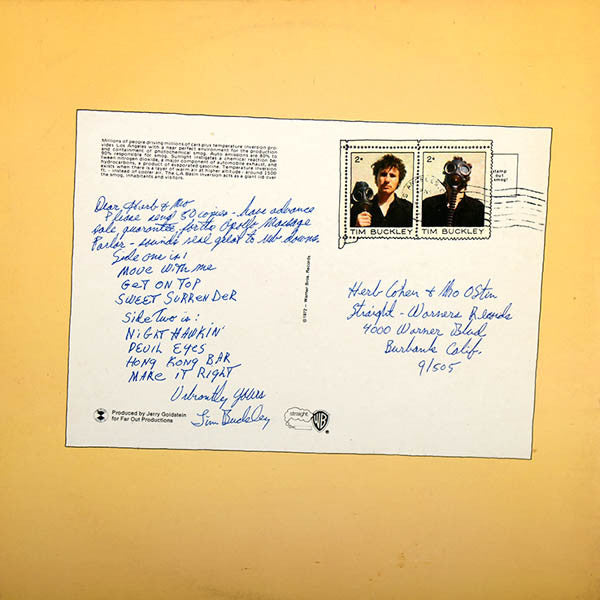 Millions of people driving millions of cars plus temperature inversion pro-
vides Los Angeles with a near perfect environment for the production
and containment of photochemical smog. Auto emissions are 80% to
90% responsible for smog. Sunlight instigates a chemical reaction be-
tween nitrogen dioxide, a major component of automobile exhaust, and
hydrocarbons, a product of evaporated gasoline. Temperature inversion
exists when there is a layer of warm air at higher altitude - around 1500
ft. - instead of cooler air. The LA Basin inversion acts as a giant lid over
the smog, inhabitants and visitors.
Dear Herb & Mo
Please send 50 copies - have advance
sale guarantee, for the Apollo Massage
Parlor - sounds real great to rub downs.
Side one is:
MOVE WITH ME
GET ON TOP
SWEET SURRENDER
Side Two is:
NIGHT HAWKIN'
DEVIL EYES
HONG KONG BAR
MAKE IT RIGHT
Vibrantly Yours
Tim Buckley
Produced by Jerry Goldstein
for Far Out Productions
straight
WB
®
©1972 - Warner Bros. Records
2¢
TIM BUCKLEY
2¢
TIM BUCKLEY
stamp
out
smog!
Herb Cohen & Mo Ostin
Straight - Warners Records
4000 Warner Blvd
Burbank Calif.
91505